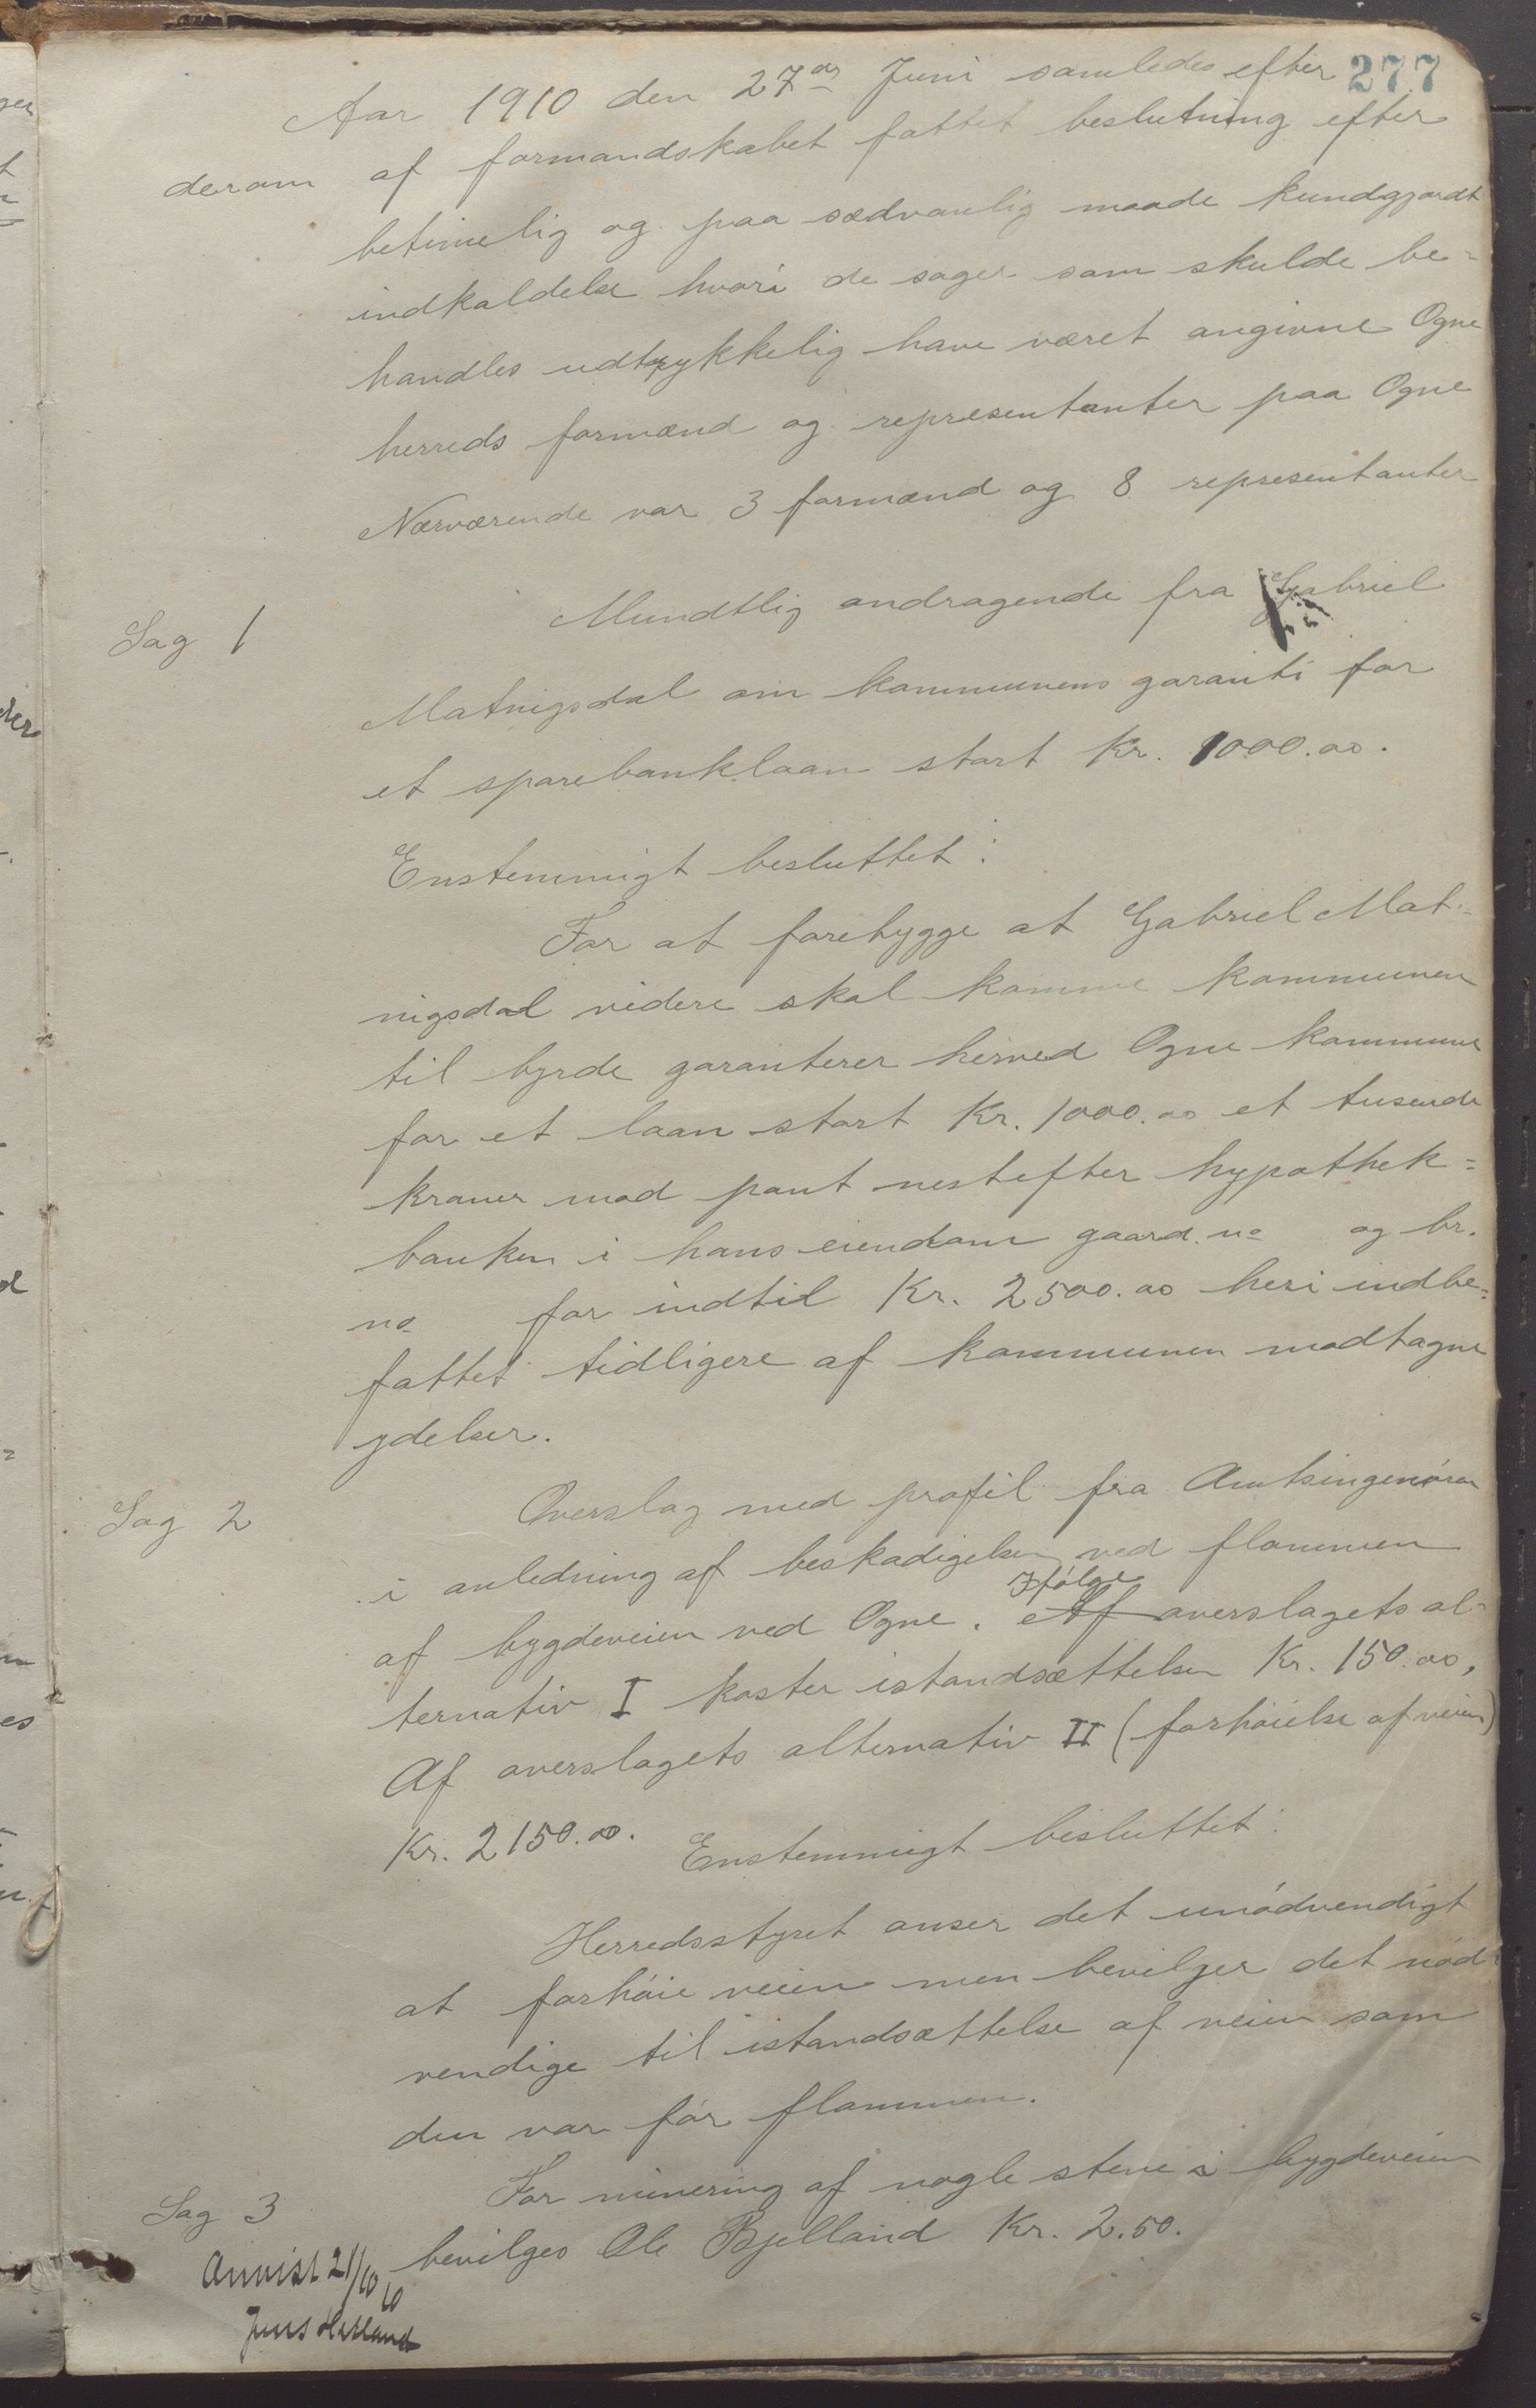 277
Aar 1910 den 27de Juni samledes efter
derom af formandskabet fattet beslutning efter
betimelig og paa sædvanlig maade kundgjordt
indkaldelse hvori de sager som skulde be=
handles udtrykkelig have været angivne Ogne
herreds formænd og repræsentanter paa Ogne
Nærværende var 3 formænd og 8 representanter
Sag 1
Mundtlig andragende fra Gabriel
Matnigsdal om kommunens garanti for
et sparebanklaan stort Kr. 1000.00.
Enstemmigt besluttet:
For at forebygge at Gabriel Mat-
nigsdal videre skal komme kommunen
til byrde garanterer herved Ogne kommune
for et laan stort Kr. 1000.00 et tusende
kroner mod pant nestefter hypothek=
banken i hans eiendom gaard. no og br.
no for indtil Kr. 2500.00 heri indbe=
fattet tidligere af kommunen modtagne
ydelser.
Sag 2
Overslag med profil fra Amtsingeniøren
i anledning af beskadigelsen ved flommen
af bygdeveien ved Ogne. Af Ifølge overslagets al=
ternativ I koster istandsættelsen Kr. 150.00,
Af overslagets alternativ II (forhøielse af veien)
Kr. 2150.00. Enstemmigt besluttet:
Herredsstyret anser det unødvendigt
at forhøie veien men bevilger det nød
vendige til istandsættelse af veien som
den var før flommen.
Sag 3
For minering af nogle stene i bygdeveien
bevilges Ole Bjelland Kr. 2.50.
Anvist 21/10 10
Jens Helland